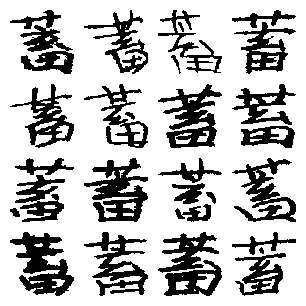 蓄蓄蓄蓄
蓄蓄蓄蓄
蓄蓄蓄蓄
蓄蓄蓄蓄